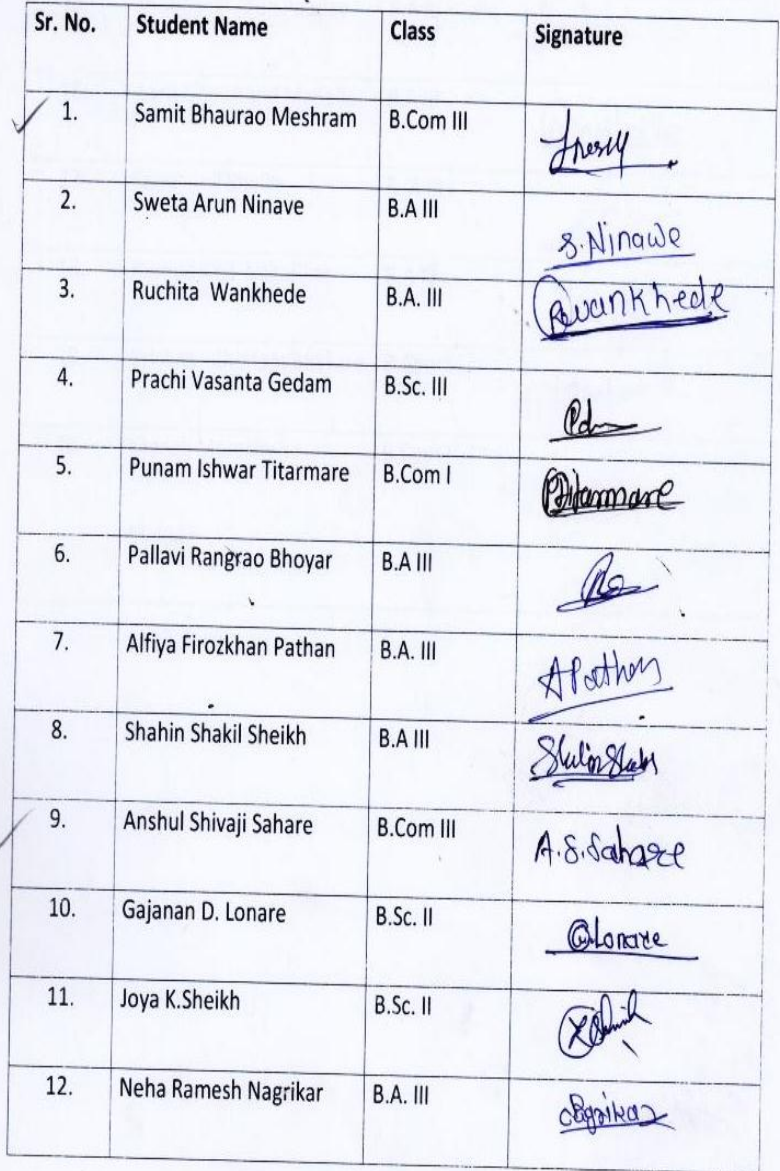 Sr. No. Student Name Class Signature
1. Samit Bhaurao Meshram B.Com III
2. Sweta Arun Ninave B.A III S. Ninawe
3. Ruchita Wankhede B.A. III RWankhede
4. Prachi Vasanta Gedam B.Sc. III
5. Punam Ishwar Titarmare B.Com I PTitarmare
6. Pallavi Rangrao Bhoyar B.A III
7. Alfiya Firozkhan Pathan B.A. III APathan
8. Shahin Shakil Sheikh B.A III
9. Anshul Shivaji Sahare B.Com III A.S.Sahare
10. Gajanan D. Lonare B.Sc. II G.Lonare
11. Joya K.Sheikh B.Sc. II
12. Neha Ramesh Nagrikar B.A. III